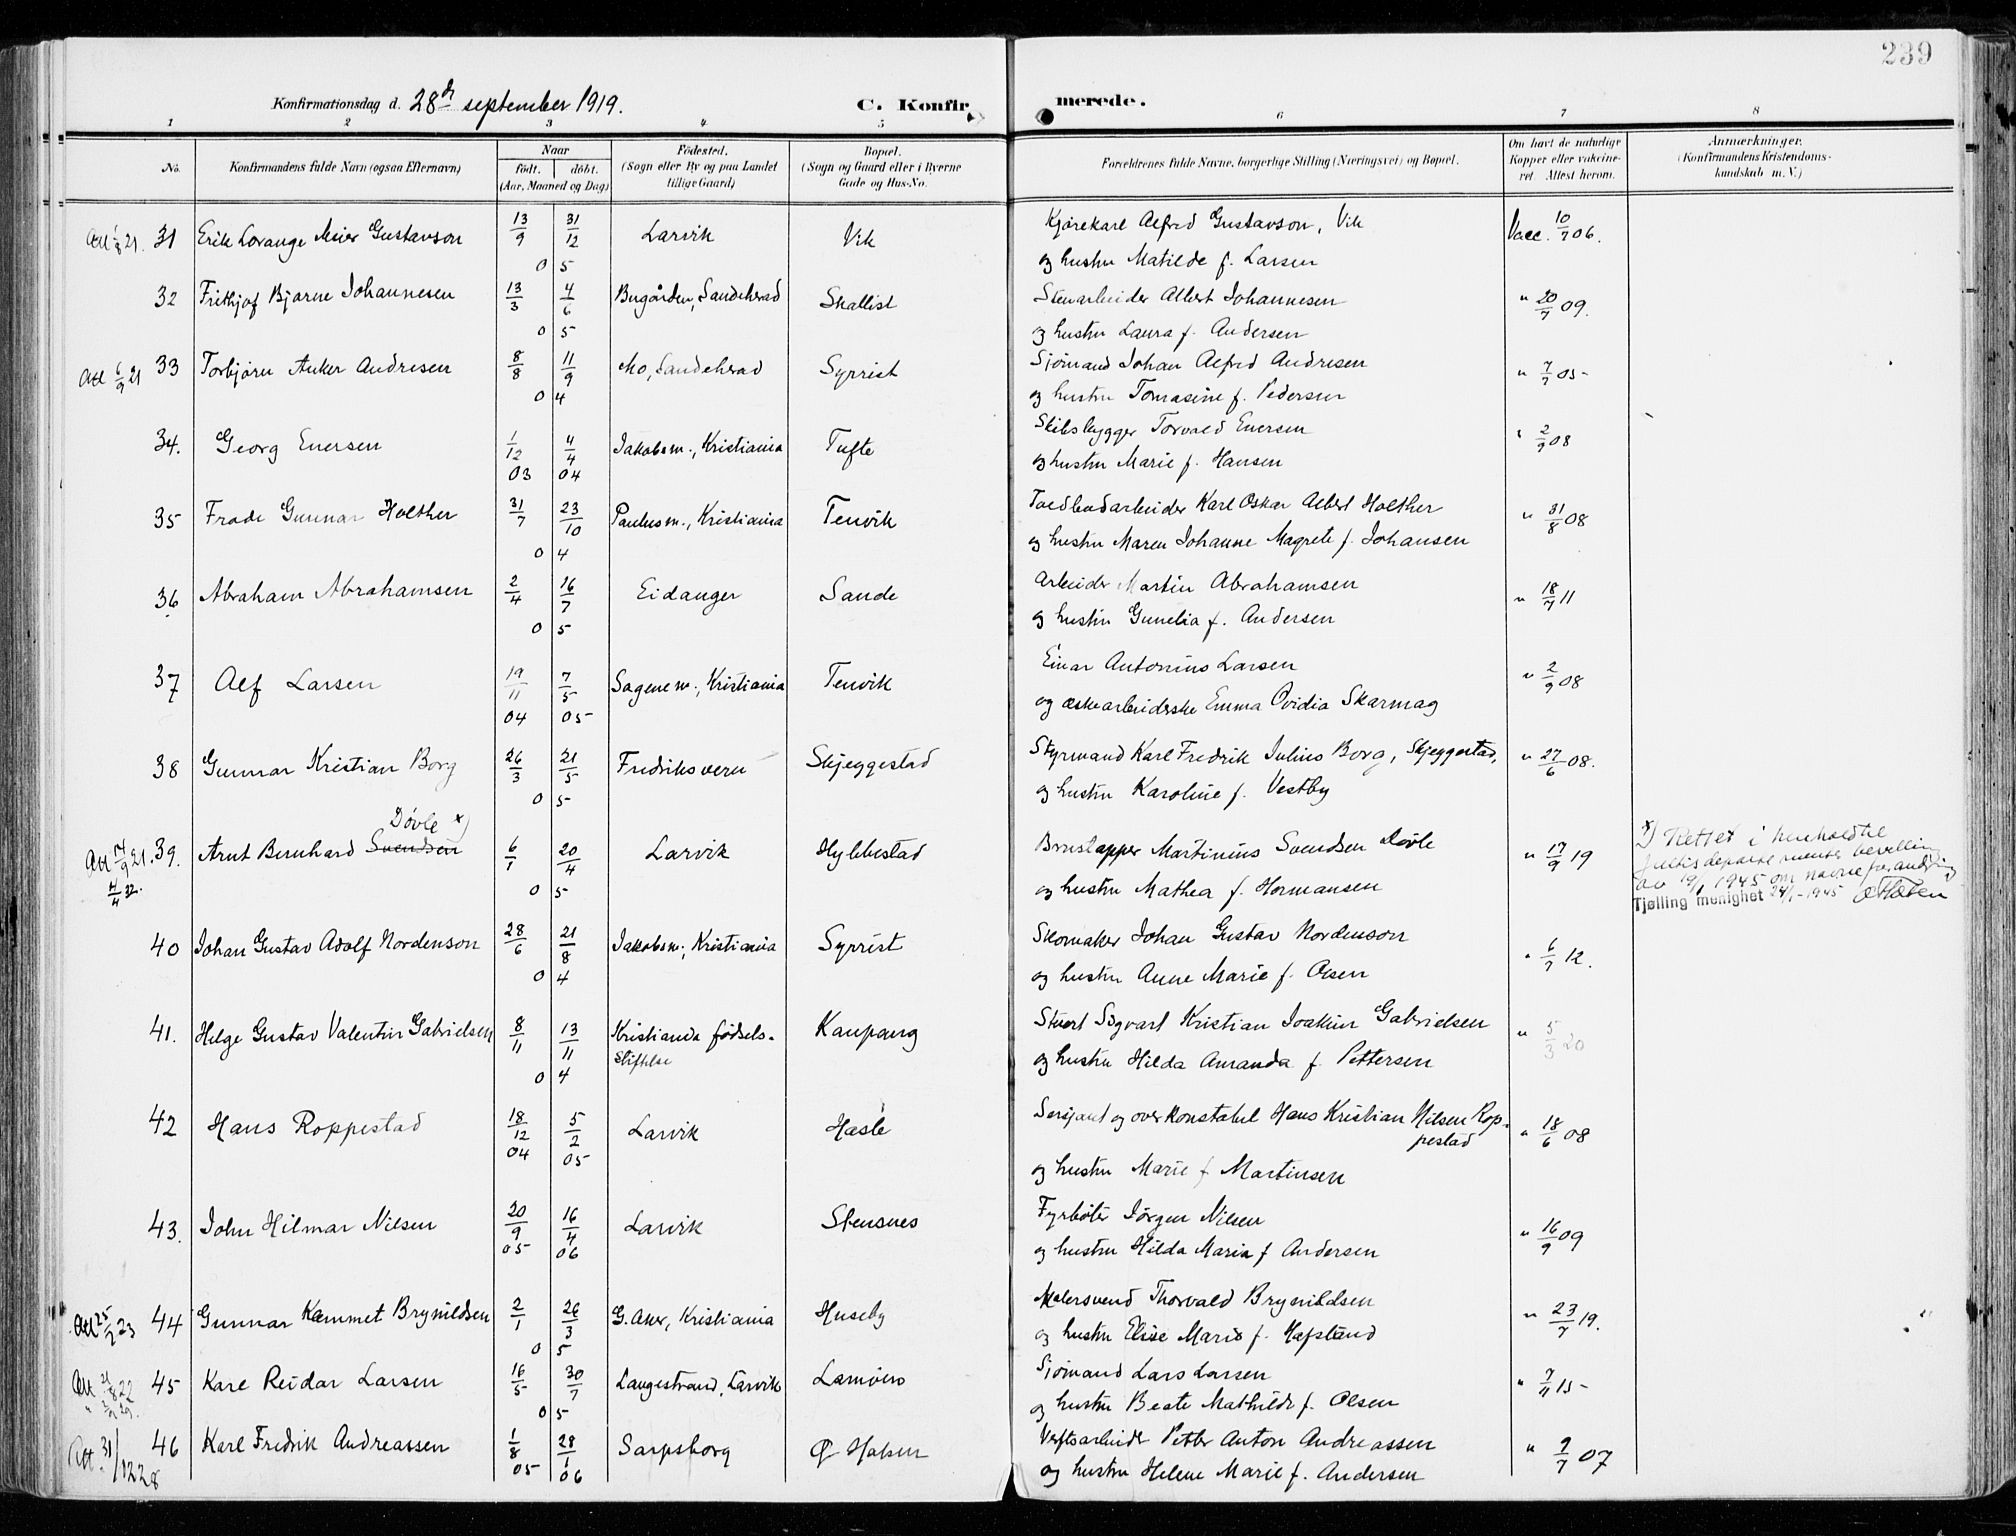 239
Konfirmationsdag d. 28de september 1919. C. Konfir merede.
1 2 3 4 5 6 7 8
No. Konfirmandens fulde Navn (ogsaa Efternavn) Naar født. døbt. (Aar, Maaned og Dag) Fødested. (Sogn eller By og paa Landet tillige Gaard) Bopæl. (Sogn og Gaard eller i Byerne Gade og Hus-No. Forældrenes fulde Navne, borgerlige Stilling (Næringsvei) og Bopæl. Om havt de naturlige Kopper eller vakcineret. Attest herom. Anmærkninger. (Konfirmandens Kristendomskundskab m. V.)
Att 1/8 21. 31 Erik Lorange Meier Gustavson 13/9 31/12 Larvik Vik Kjørekarl Alfred Gustavson, Vik Vacc. 10/7 06.
0 5 og hustru Matilde f. Larsen
32 Frithjof Bjarne Johannesen 13/3 4/6 Bugården, Sandeherad Skallist Stenarbeider Albert Johannesen " 20/7 09.
0 5 og hustru Laura f. Andersen
Att 6/9 21 33 Torbjørn Anker Andresen 8/8 11/9 Mo, Sandeherad Syrrist Sjømand Johan Alfred Andresen " 7/7 05
0 4 og hustru Tomasine f. Pedersen
34. Georg Enersen 1/12 4/4 Jakobsm., Kristiania Tufte Skibsbygger Torvald Enersen " 2/9 08
03 04 og hustru Marie f. Hansen
35 Frode Gunnar Holther 31/7 23/10 Paulusm., Kristiania Tenvik Toldbodarbeider Karl Oskar Albert Holther " 31/8 08
0 4 og hustru Maren Johanne Magrete f. Johansen
36 Abraham Abrahamsen 2/4 16/7 Eidanger Sande Arbeider Martin Abrahamsen " 18/7 11
0 5 og hustru Gunelia f. Andersen
37 Alf Larsen 19/11 7/5 Sagene m., Kristiania Tenvik Einar Antonius Larsen " 2/9 08
04 05 og æskearbeiderske Emma Ovidia Skarmag
38 Gunnar Kristian Borg 26/3 21/5 Fredriksvern Skjeggestad Styrmand Karl Fredrik Julius Borg, Skjeggestad, " 27/6 08.
0 5 og hustru Karoline f. Vestby
Døvle x)
Att 14/9 21. 39. Arnt Bernhard Svendsen 6/1 20/4 Larvik Hybbestad Brustapper Martinius Svendsen Døvle " 17/9 19
4/4 32. 0 5 og hustru Mathea f. Hermansen
x) Rettet i henhold til
Justisdepartementets bevilling
av 19/1 1945 om navneforandring
Tjølling menighet 24/1-1945
40 Johan Gustav Adolf Nordenson 28/6 21/8 Jakobsm., Kristiania Syrrist Skomaker Johan Gustav Nordenson " 6/7 12.
0 4 og hustru Anne Marie f. Olsen
41. Helge Gustav Valentin Gabrielsen 8/11 13/11 Kristiania fødsels- Kaupang Stuert Sigvart Kristian Joakim Gabrielsen " 5/3 20
stiftelse
0 4 og hustru Hilda Amanda f. Pettersen
42 Hans Roppestad 18/12 5/2 Larvik Hasle Sersjant og overkonstabel Hans Kristian Nilsen Rop- " 18/6 08
pestad
04 05 og hustru Marie f Martinsen
43. John Hilmar Nilsen 20/9 16/4 Larvik Stensnes Fyrbøter Jørgen Nilsen " 16/9 09
05 06 og hustru Hilda Maria f Andersen
Att 25/2 23 44 Gunnar Kammet Brynildsen 2/1 26/3 G. Aker, Kristiania Huseby Malersvend Thorvald Brynildsen " 23/7 19.
0 5 og hustru Elise Marie f. Hafstand
Att 21/8 22 45 Karl Reidar Larsen 16/5 30/7 Langestrand, Larvik Lamøen Sjømand Lars Larsen " 7/11 15
0 5 og hustru Beate Mathilde f. Olsen
Att 31/12 28 46 Karl Fredrik Andreassen 1/8 28/1 Sarpsborg Ø Halsen Verftsarbeider Petter Anton Andreassen " 9/7 07
05 06 og hustru Helene Marie f. Andersen